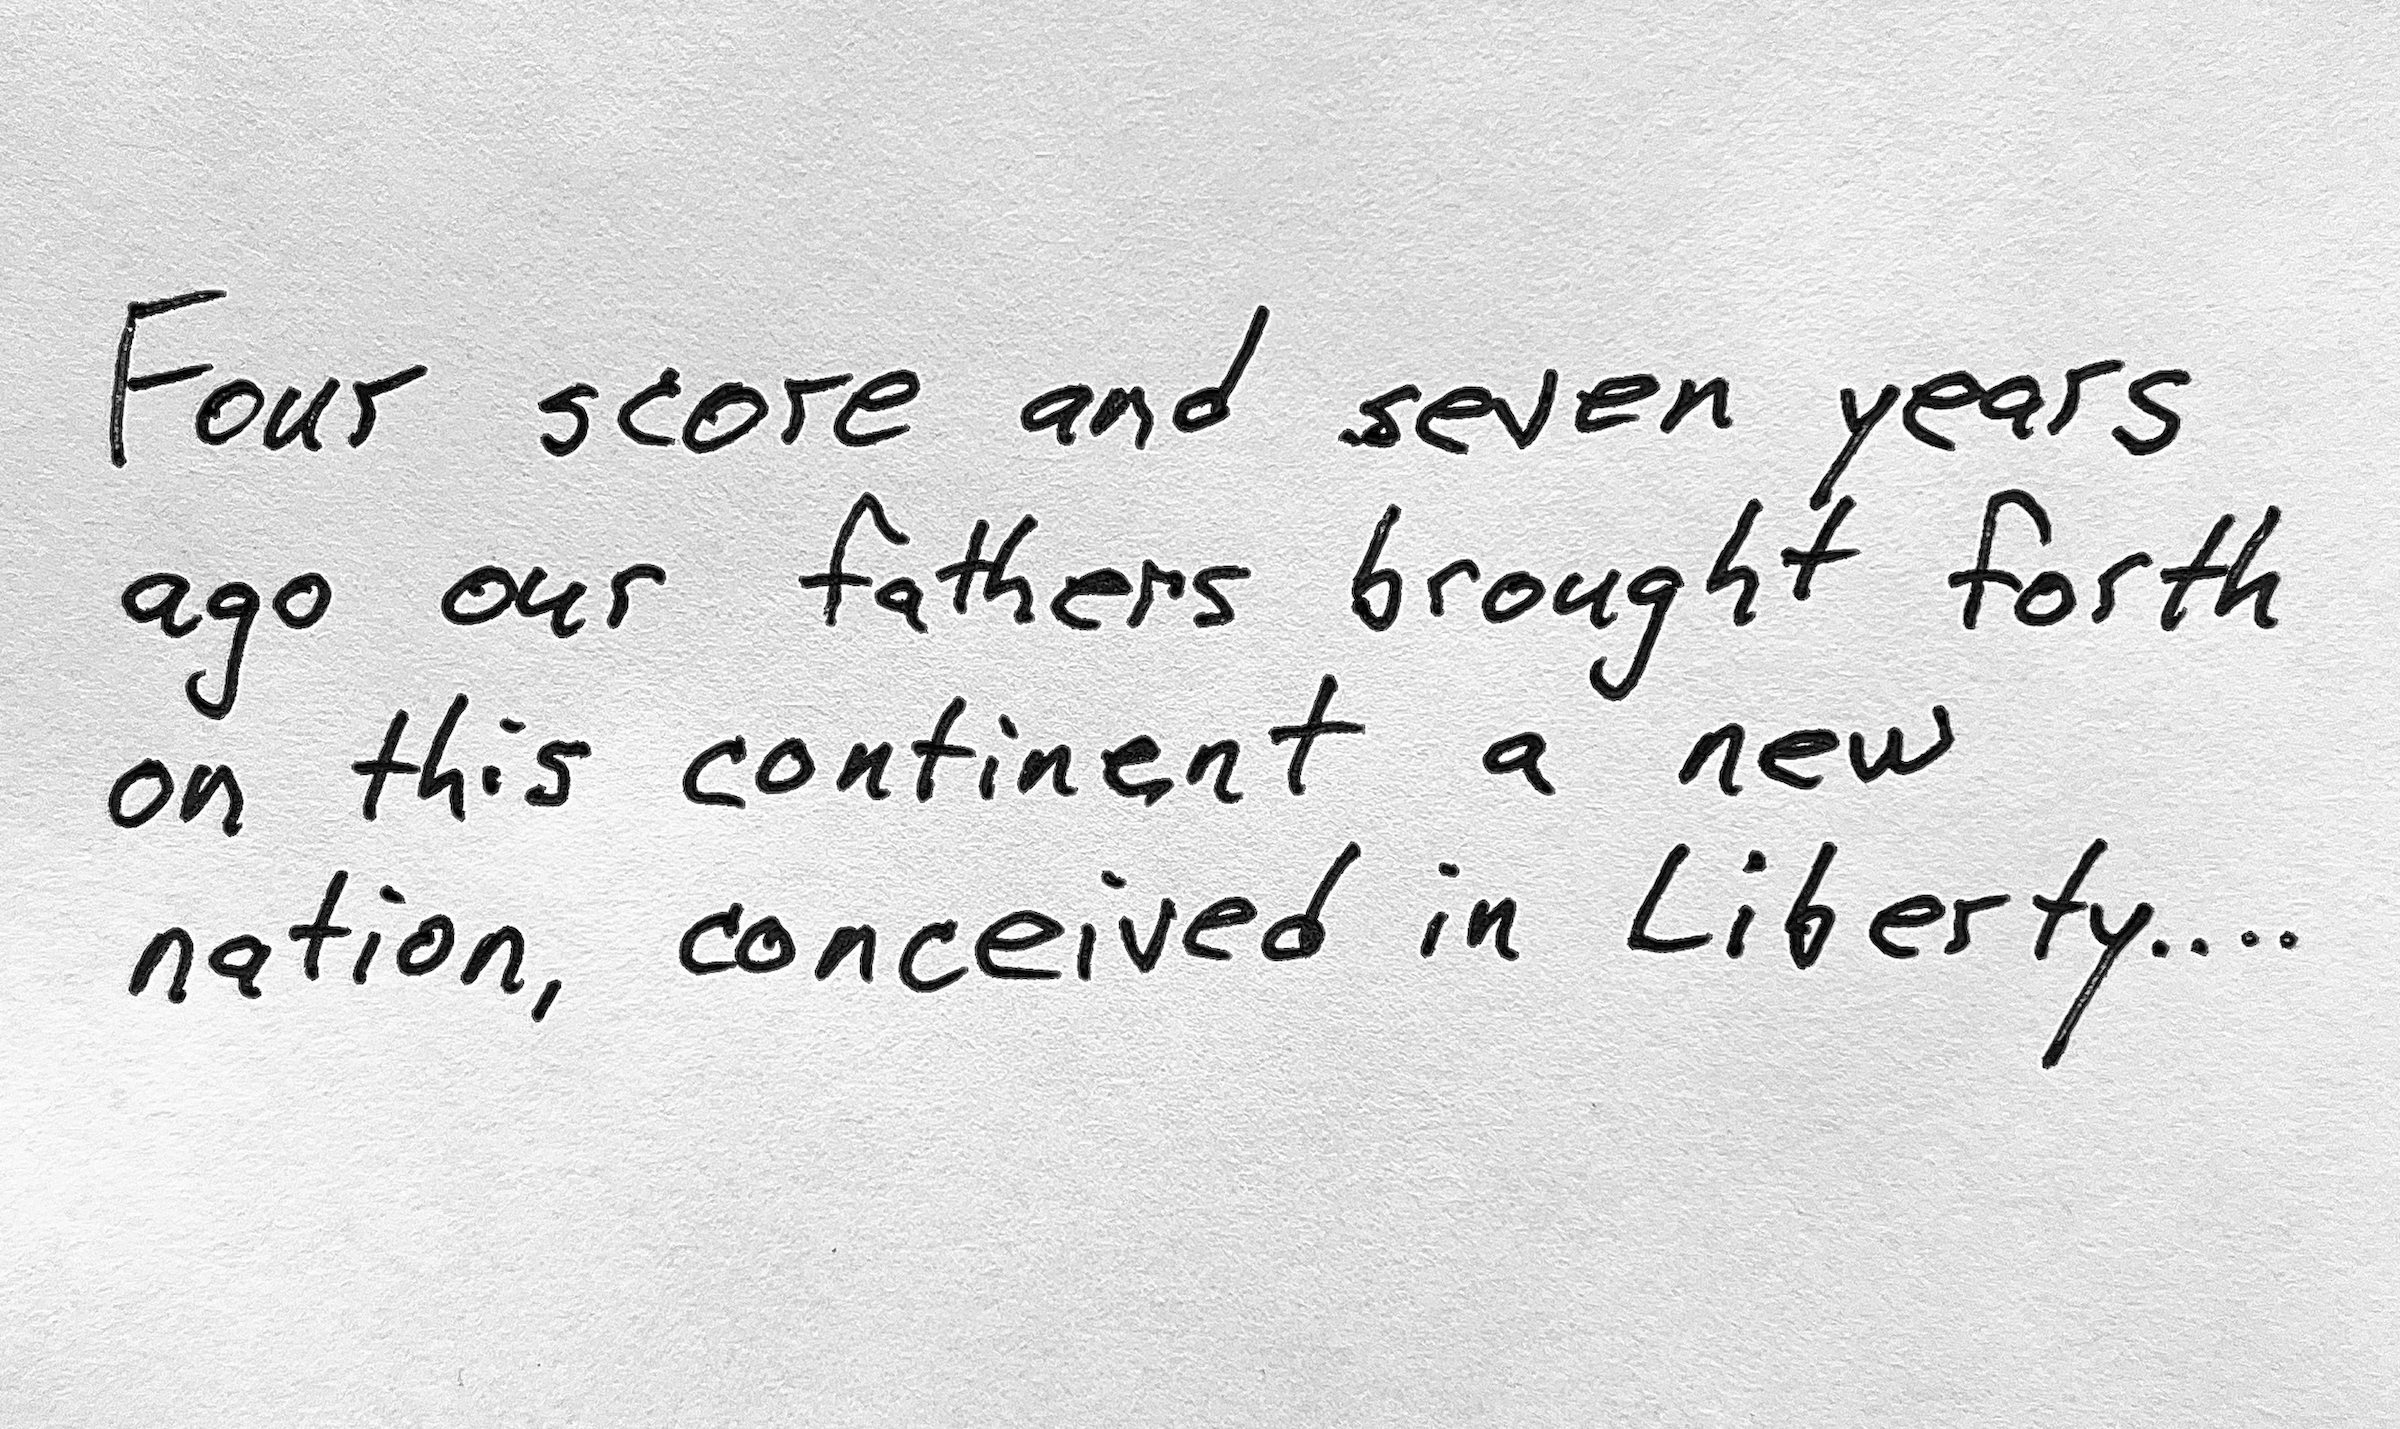 Four score and seven years
ago our fathers brought forth
on this continent a new
nation, conceived in Liberty....